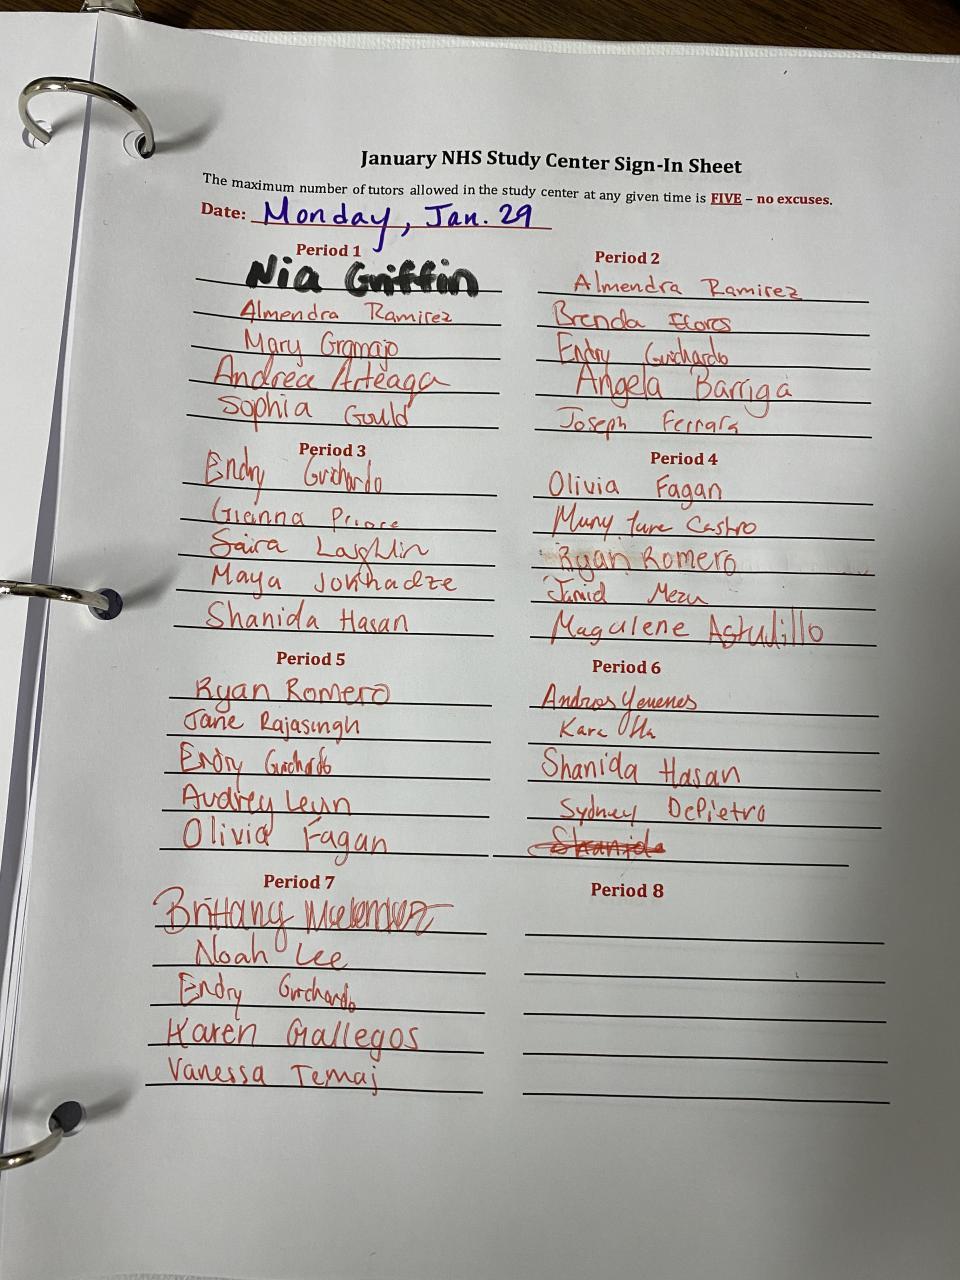 January NHS Study Center Sign-In Sheet
The maximum number of tutors allowed in the study center at any given time is FIVE – no excuses.
Date: Monday, Jan. 29
Period 1
Nia Griffin
Almendra Ramirez
Mary Gramajo
Andrea Arteaga
Sophia Gould
Period 2
Almendra Ramirez
Brenda Flores
Endry Guichardo
Angela Barriga
Joseph Ferrara
Period 3
Endry Guichardo
Gianna Priore
Saira Laghlin
Maya Jovkhadze
Shanida Hasan
Period 4
Olivia Fagan
Castro
Ryan Romero
Magalene Astudillo
Period 5
Ryan Romero
Jane Rajasingh
Endry Guichardo
Audrey Leyn
Olivia Fagan
Period 6
Andros
Kara
Shanida Hasan
Sydney DePietro
Shanida
Period 7
Brittany
Noah Lee
Endry Guichardo
Karen Gallegos
Vanessa Temaj
Period 8